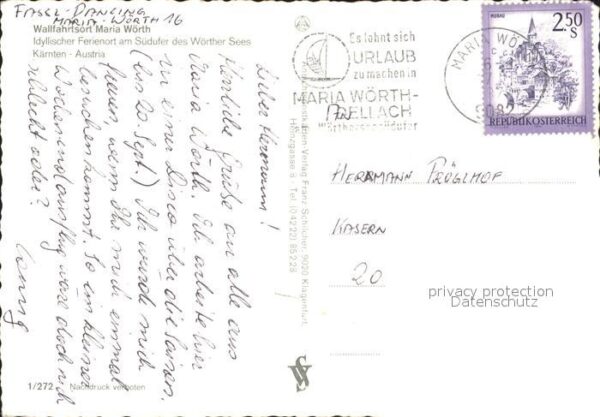 FASSL-DANCING
MARIA-WÖRTH 16
Wallfahrtsort Maria Wörth
Idyllischer Ferienort am Südufer des Wörther Sees
Kärnten - Austria
Lieber Hermann!
Herzliche Grüße an alle aus
Maria Wörth. Ich arbeite hier
in einer Disco über die Saison.
(bis 20 Sept.) Ich würde mich
freuen, wenn Ihr mich einmal
besuchen kommt. So ein kleiner
Wochenendausflug wäre doch nicht
schlecht oder?
1/272 Nachdruck verboten
Verlag Franz Schilcher, 9020 Klagenfurt,
Tel. (0 42 22) 85 2 28
Es lohnt sich
URLAUB
zu machen in
MARIA WÖRTH-
MARIA WÖRTH
MURAU
2.50
S
REPUBLIK ÖSTERREICH
HERRMANN PRÖGLHOF
KASERN
20
privacy protection
Datenschutz